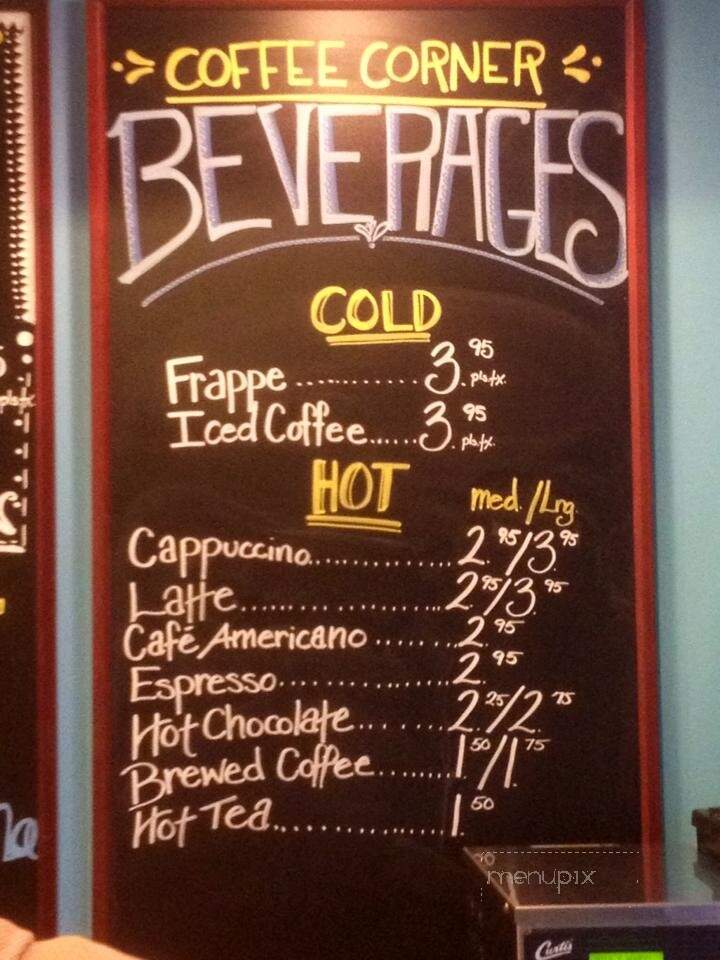 COFFEE CORNER
BEVERAGES
COLD
Frappe .......... 3.95 pls.tx.
Iced Coffee...... 3.95 pls.tx.
HOT med./Lrg.
Cappuccino............... 2.95/3.95
Latte..................... 2.95/3.95
Café Americano ...... 2.95
Espresso............. 2.95
Hot Chocolate....... 2.25/2.75
Brewed Coffee........ 1.50/1.75
Hot Tea............... 1.50
menupix
Curtis